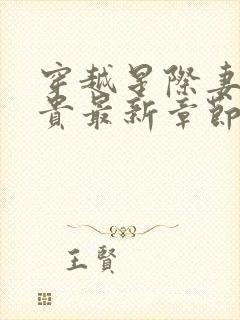 穿越星際妻
貴最新章節
王賢